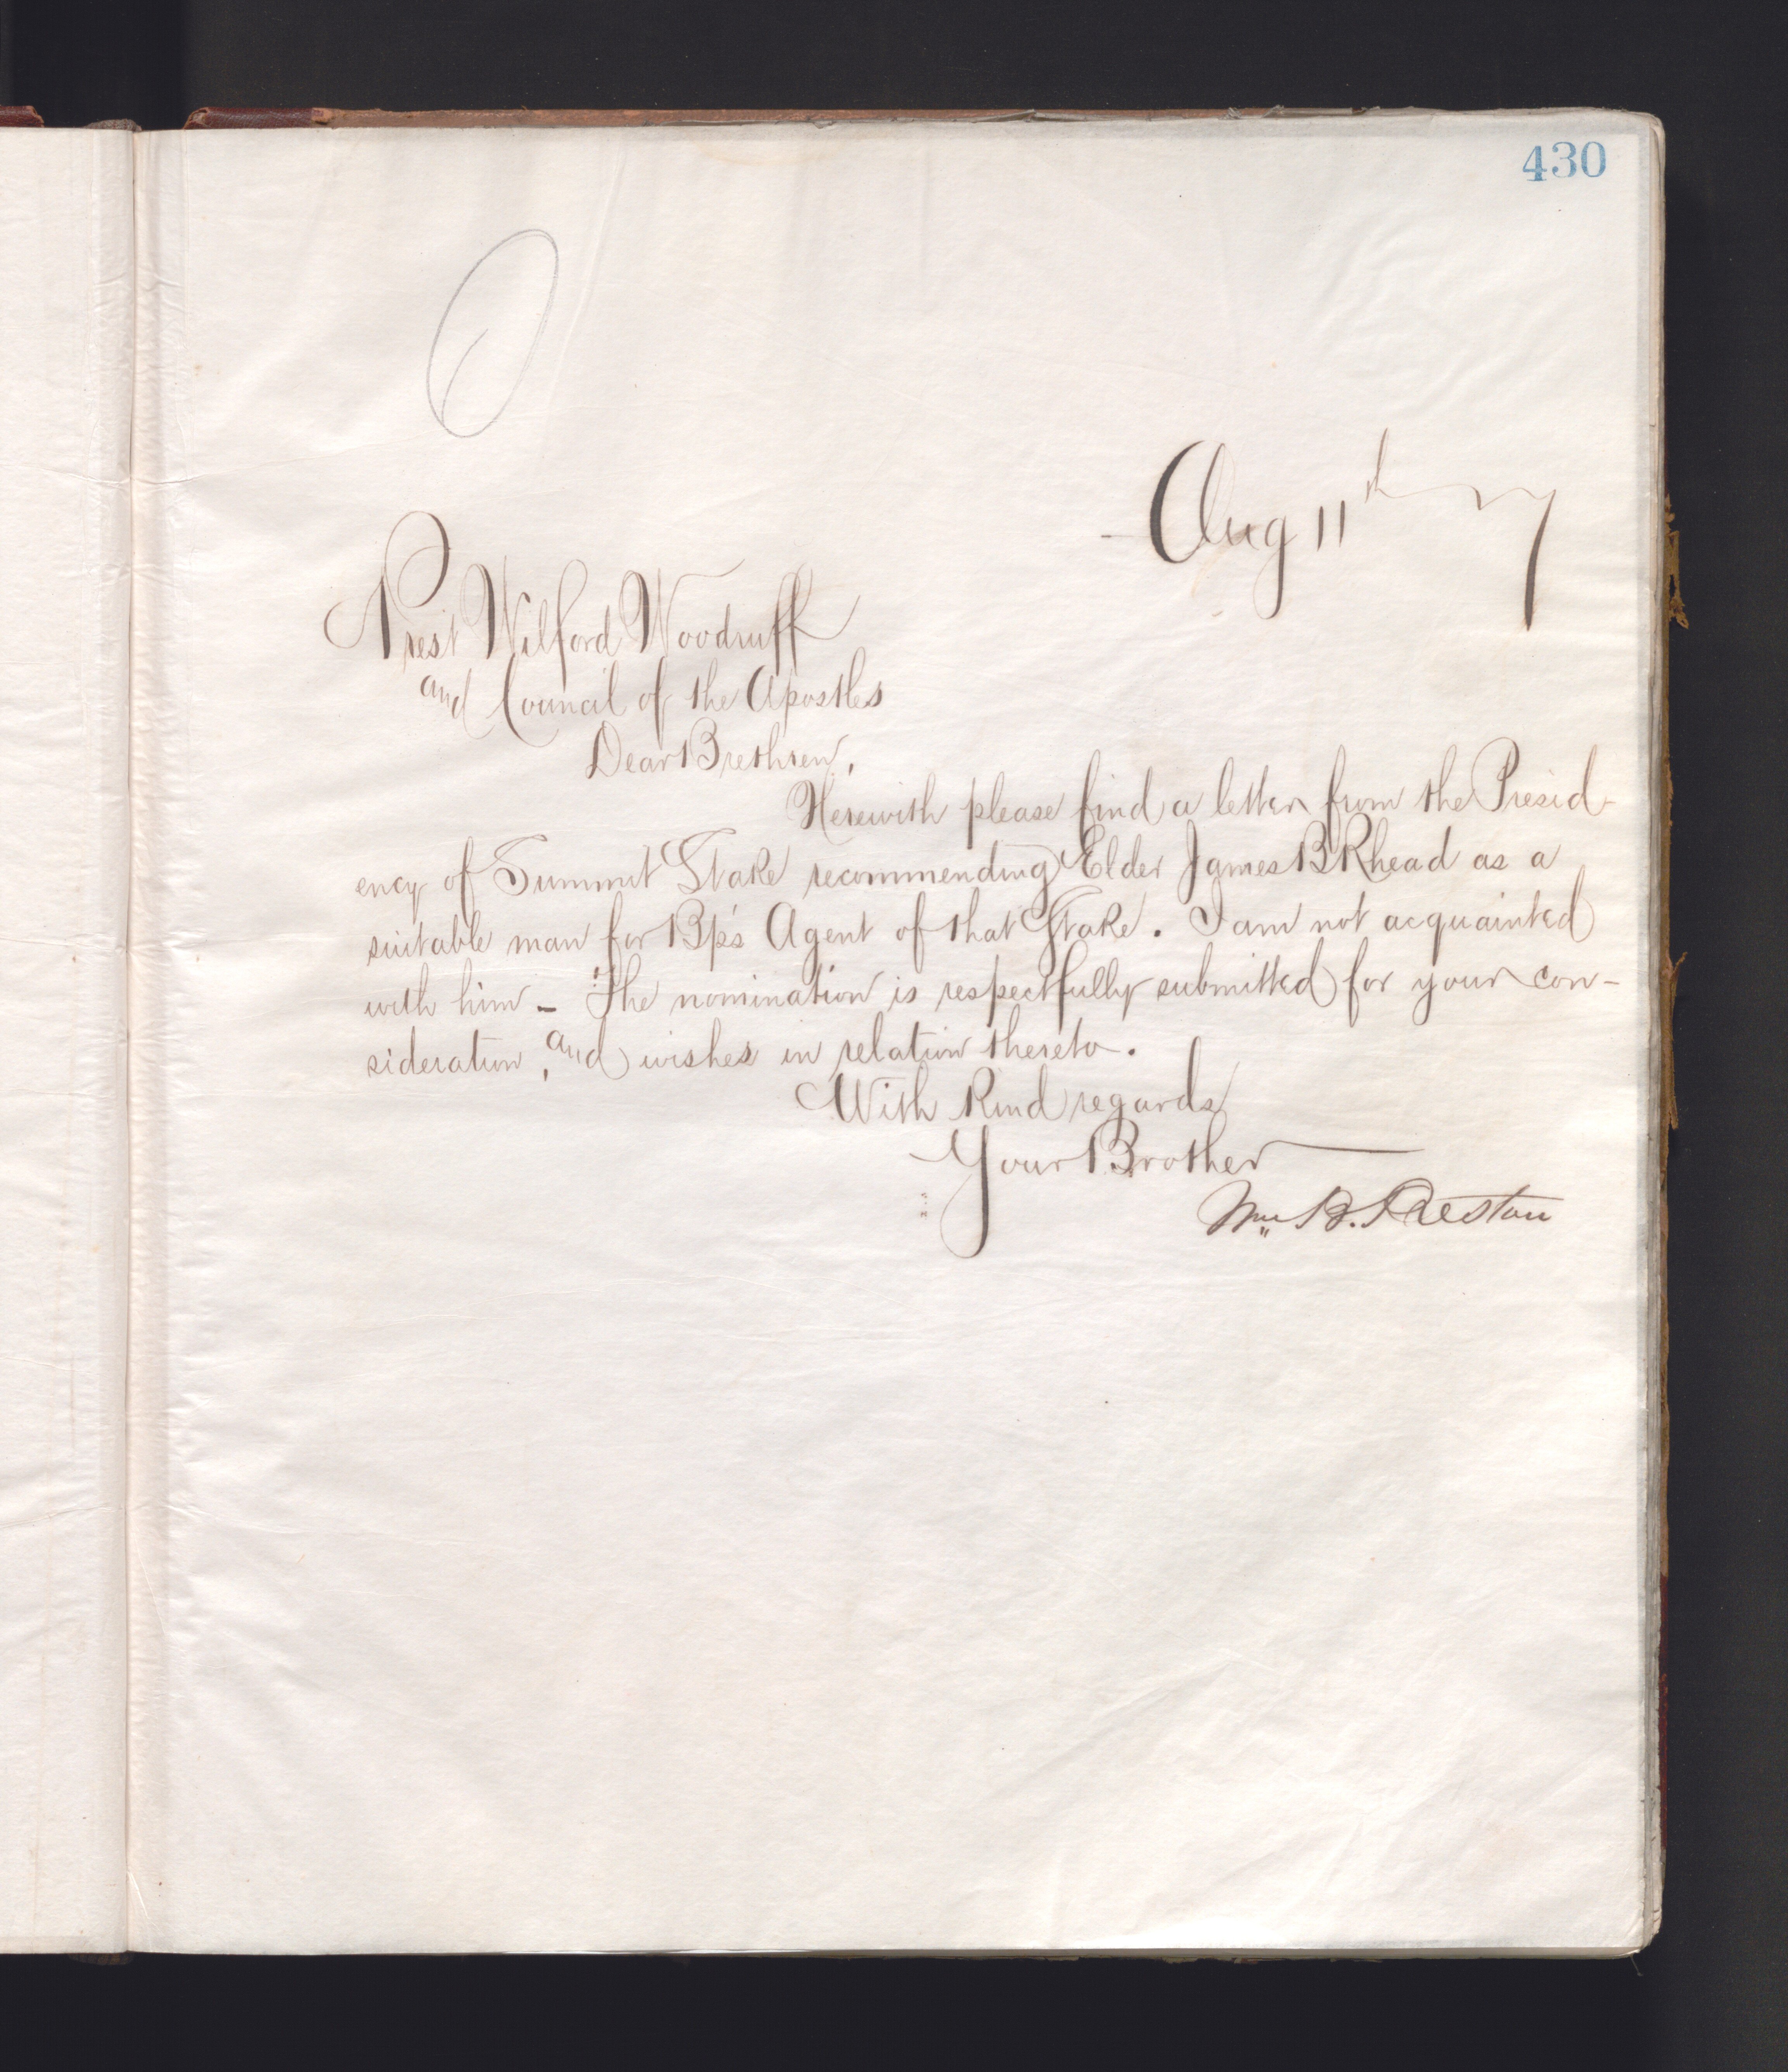 430
Aug 11th 7
Prest Wilford Woodruff
and Council of the Apostles
Dear Brethren,
Herewith please find a letter from the Presid-
ency of Summit Stake recommending Elder James B Rhead as a
suitable man for Bp's Agent of that Stake. I am not acquainted
with him - The nomination is respectfully submitted for your con-
sideration, and wishes in relation thereto.
With kind regards
Your Brother
Wm B. Preston